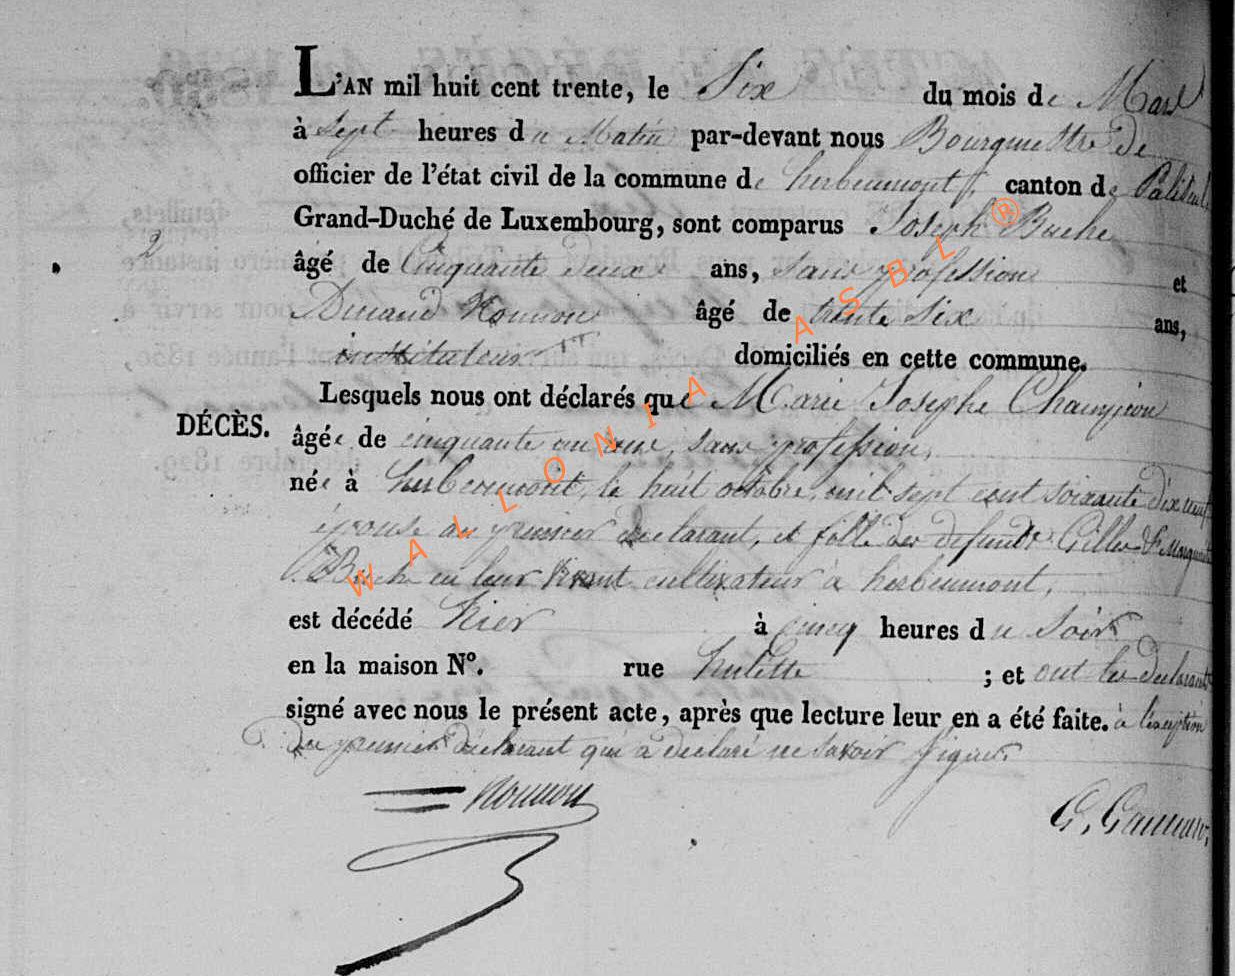 L'AN mil huit cent trente, le Six du mois de Mars
à Sept heures du Matin par-devant nous Bourguestre de
officier de l'état civil de la commune de herbeumont, canton de Paliseul
Grand-Duché de Luxembourg, sont comparus Joseph Buche
2
âgé de Cinquante deux ans, sans profession et
Dinand Nounou âgé de trente Six ans,
instituteur domiciliés en cette commune.
Lesquels nous ont déclarés que Marie Josephe Champion
DÉCÈS.
âgée de cinquante un ans, sans profession,
née à herbeumont, le huit octobre, mil sept cent soixante dix neuf
épouse au premier declarant, et fille des defunts Gilles &
Buche en leur vivant cultivateur à herbeumont,
est décédé hier à cinq heures du Soir
en la maison N°. rue hulette ; et ont les declarants
signé avec nous le présent acte, après que lecture leur en a été faite. à l'exception
du premier declarant qui a declaré ne savoir signer.
Nounou
G. 
WALLONIA ASBL ®